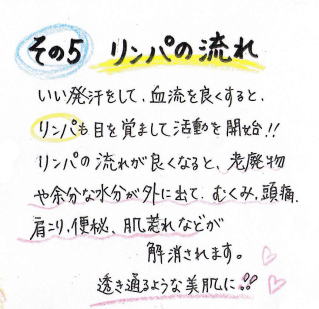 その5 リンパの流れ
いい発汗をして、血流を良くすると、
リンパも目を覚まして活動を開始!!
リンパの流れが良くなると、老廃物
や余分な水分が外に出て、むくみ、頭痛、
肩こり、便秘、肌荒れなどが
解消されます。
透き通るような美肌に!!